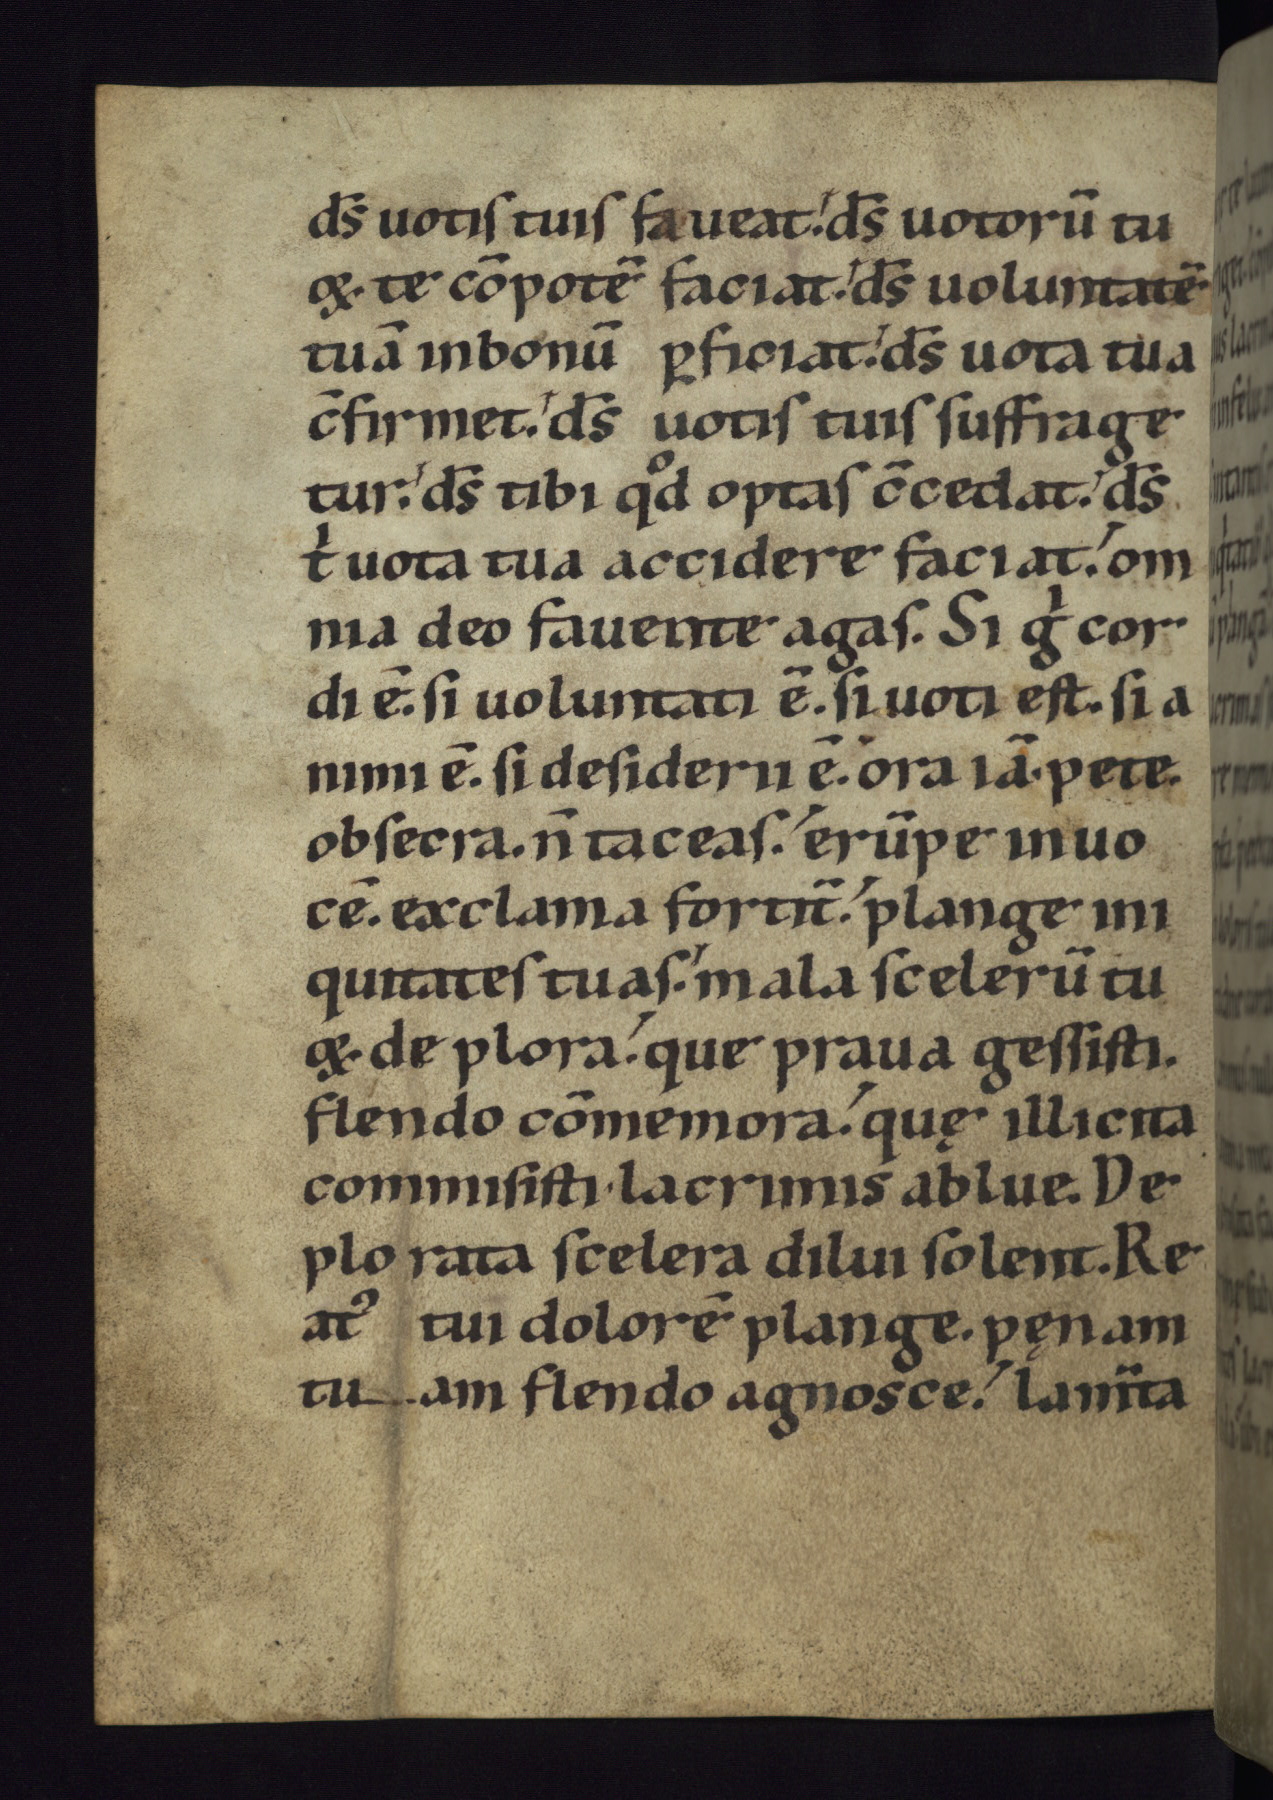 dſ̄ uotiſ tuiſ faueat. dſ̄ uotorū tu
oꝝ. te cōpotē faciat. dſ̄ uoluntatē
tuā in bonū ꝑficiat. dſ̄ uota tua
c̄firmet. dſ̄ uotiſ tuiſ ſuffrage
tur. dſ̄ tibi qͦd optaſ c̄cedat. dſ̄
tͥ uota tua accidere faciat. om
nia deo fauente agaſ. Si gͥ cor
di ē. ſi uoluntati ē. ſi uoti eſt. ſi a
nimi ē. ſi deſiderii ē. ora iā. pete.
obſecra. n̄ taceaſ. erūpe in uo
cē. exclama fortit̄. plange ini
quitateſ tuaſ. mala ſcelerū tu
oꝝ. de plora. que praua geſſiſti.
flendo cōmemora. quę illicita
commiſiſti. lacrimis ablue. De
plo rata ſcelera dilui ſolent. Re
atꝰ tui dolorē plange. pęnam
tu am flendo agnoſce. lam̄ta